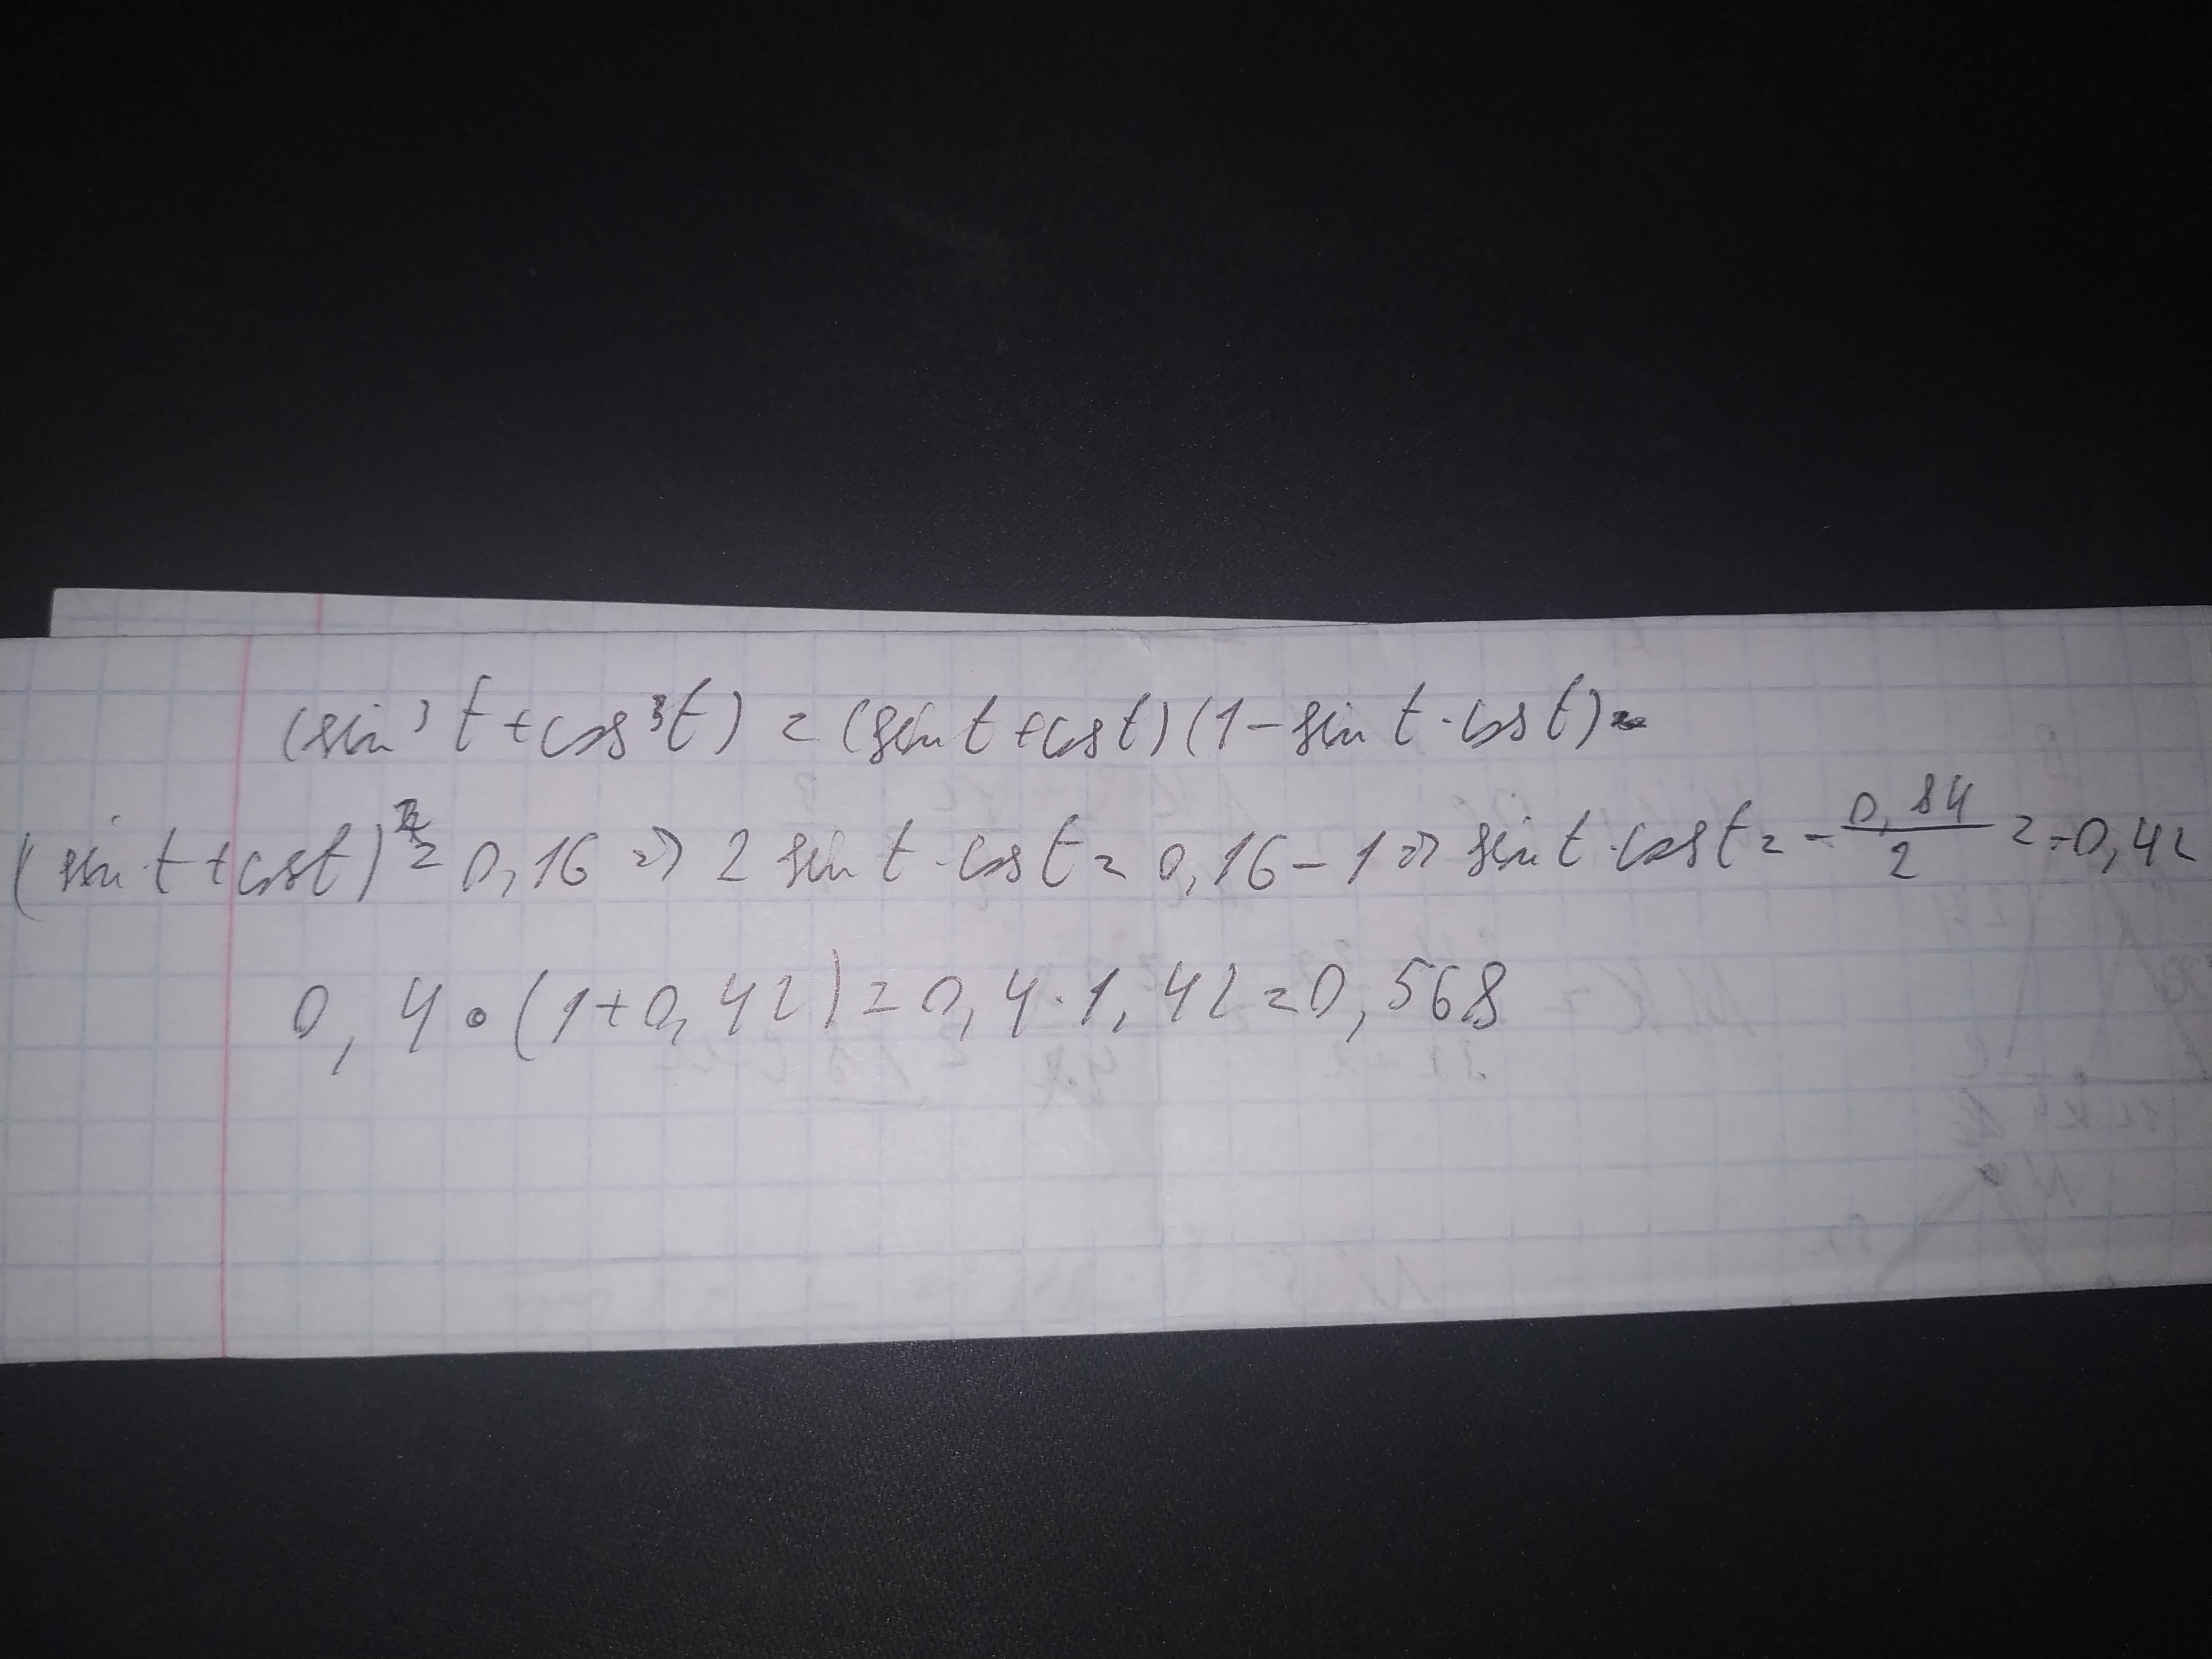 (sin³t+cos³t) = (sin t+cos t)(1-sin t·cos t)=
(sin t+cos t)²= 0,16 => 2 sin t·cos t = 0,16-1 => sin t·cos t = -0,84/2 = -0,42
0,4·(1+0,42)=0,4·1,42=0,568